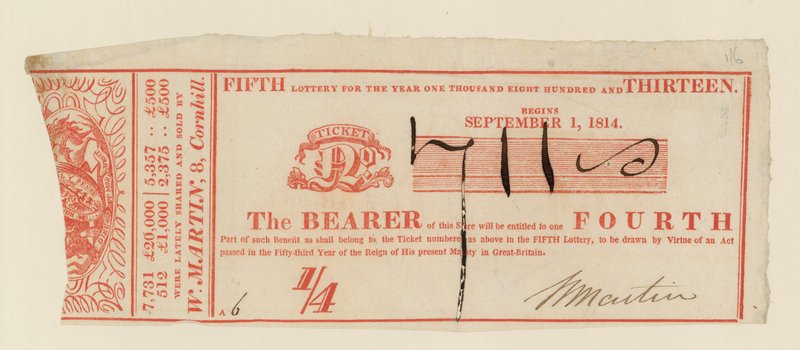 1/6
7,731 £20,000 | 5,357 :: £500
512 £1,000 | 2,375 :: £500
WERE LATELY SHARED AND SOLD BY
W. MARTIN, 8, Cornhill.
FIFTH LOTTERY FOR THE YEAR ONE THOUSAND EIGHT HUNDRED AND THIRTEEN.
BEGINS
SEPTEMBER 1, 1814.
TICKET
No.
711
The BEARER of this Share will be entitled to one FOURTH
Part of such Benefit as shall belong to the Ticket numbered as above in the FIFTH Lottery, to be drawn by Virtue of an Act
passed in the Fifty-third Year of the Reign of His present Majesty in Great-Britain.
A 6
1/4
W Martin